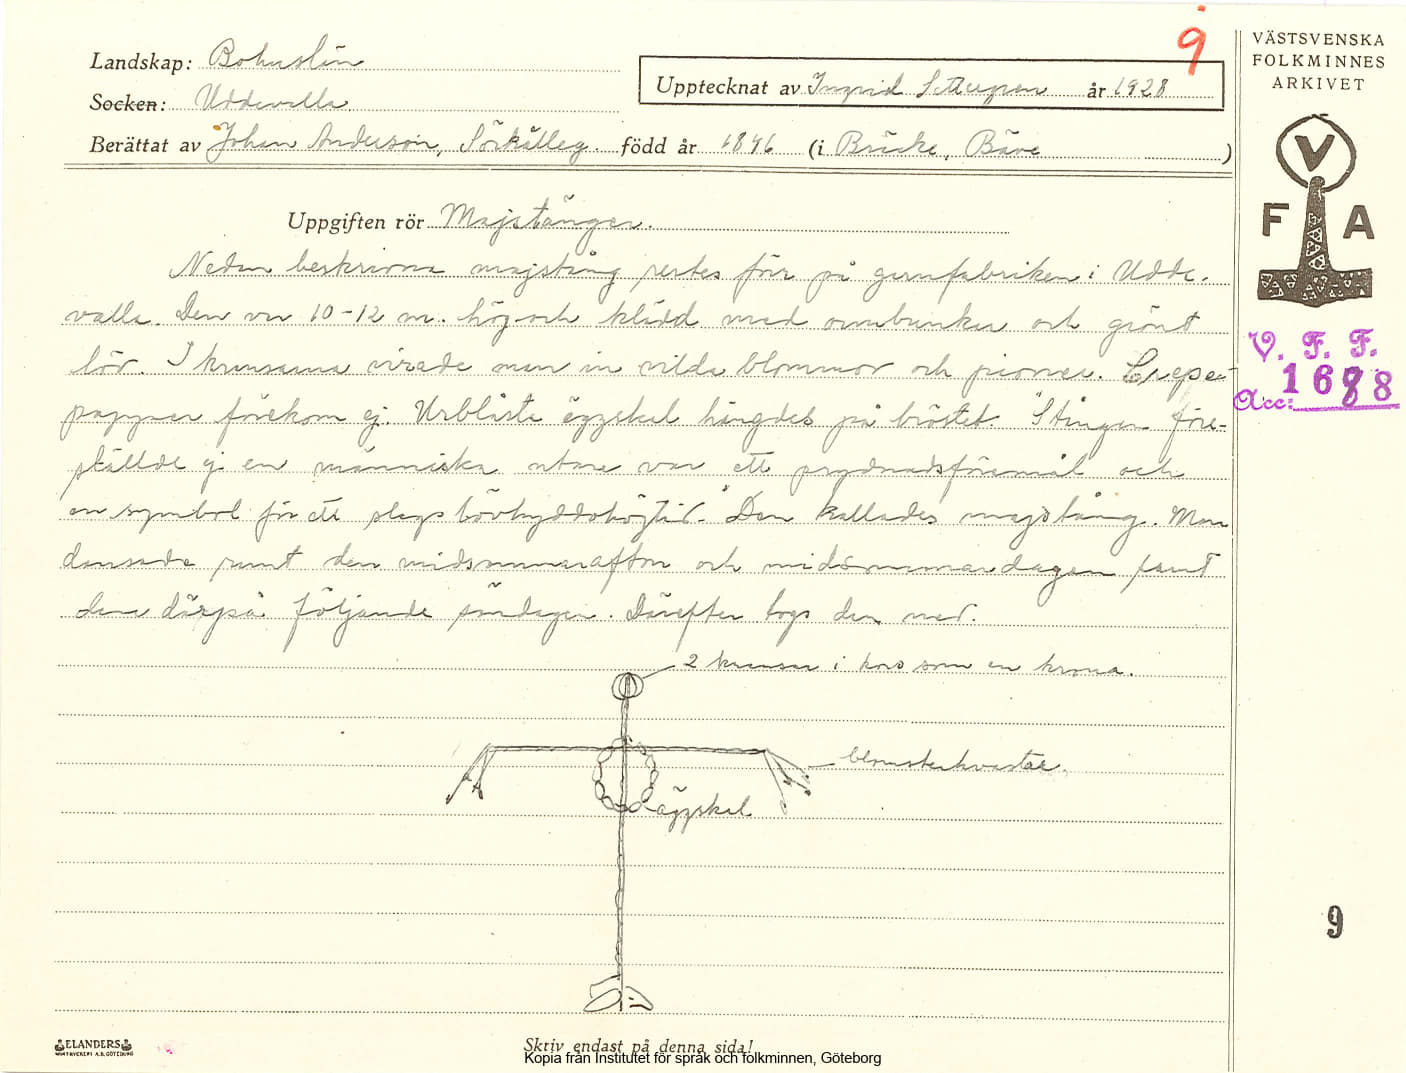 9
VÄSTSVENSKA
FOLKMINNES
ARKIVET
Landskap: Bohuslän
Upptecknat av Ingrid år 1928
Socken: Uddevalla
Berättat av Johan Anderson, född år 1846 (i Bräcke, Bäve)
V
F A
Uppgiften rör Majstänger.
Nedan beskrivna majstång restes förr på garnfabriken i Udde-
valla. Den var 10-12 m. hög och klädd med ormbunkar och grönt
löv. I kransarna virade man in vilda blommor och pioner. Crepe-
papper förekom ej. Urblåsta äggskal hängdes på bröstet. "Stången före-
ställde ej en människa utan var ett prydnadsföremål och
en symbol för ett slags lövhyddohögtid." Den kallades majstång. Man
dansade runt den midsommarafton och midsommardagen samt
den därpå följande söndagen. Därefter togs den ned.
V. F. F.
Acc: 1688
2 kransar i kors som en krona.
blomsterkvastar.
äggskal
9
ELANDERS
Skriv endast på denna sida!
Kopia från Institutet för språk och folkminnen, Göteborg